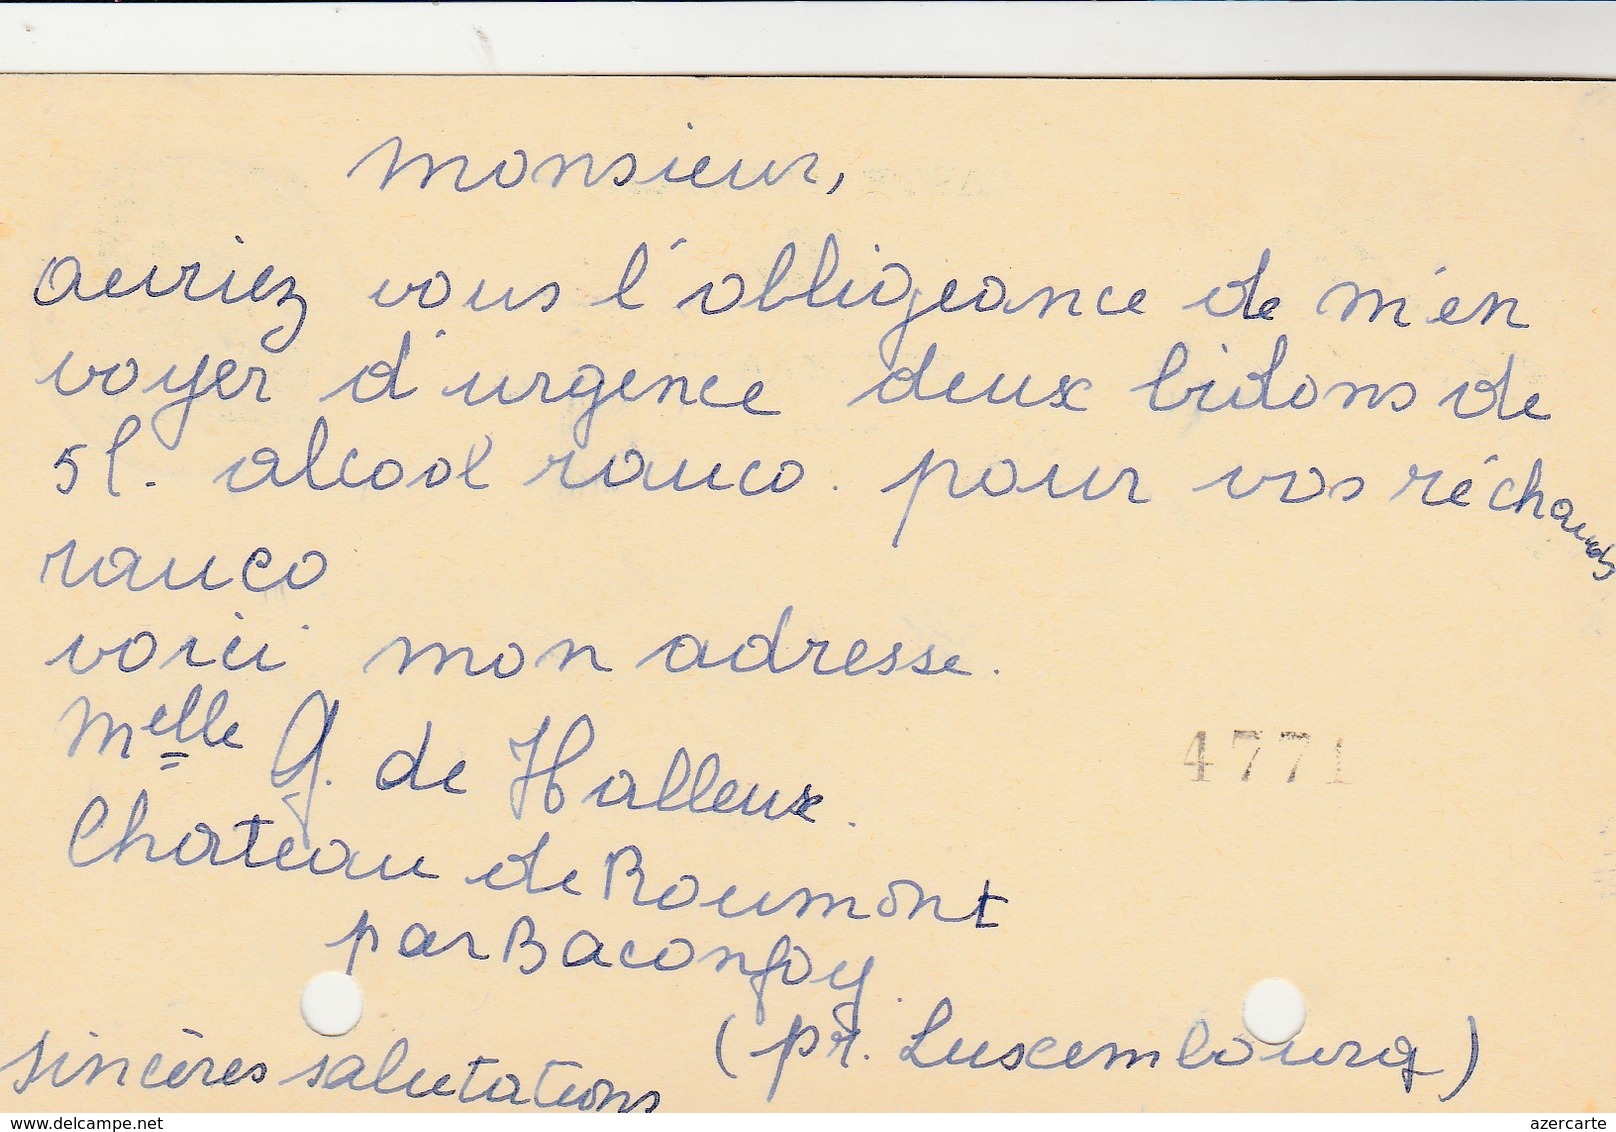 Monsieur,
auriez vous l'obligeance de m'en
voyer d'urgence deux bidons de
5l. alcool rauco. pour vos réchauds
rauco
voici mon adresse.
Melle G. de Halleux.
Chateau de Roumont
par Baconfoy.
(pr. Luxembourg)
sincères salutations
4771
www.delcampe.net
azercarte